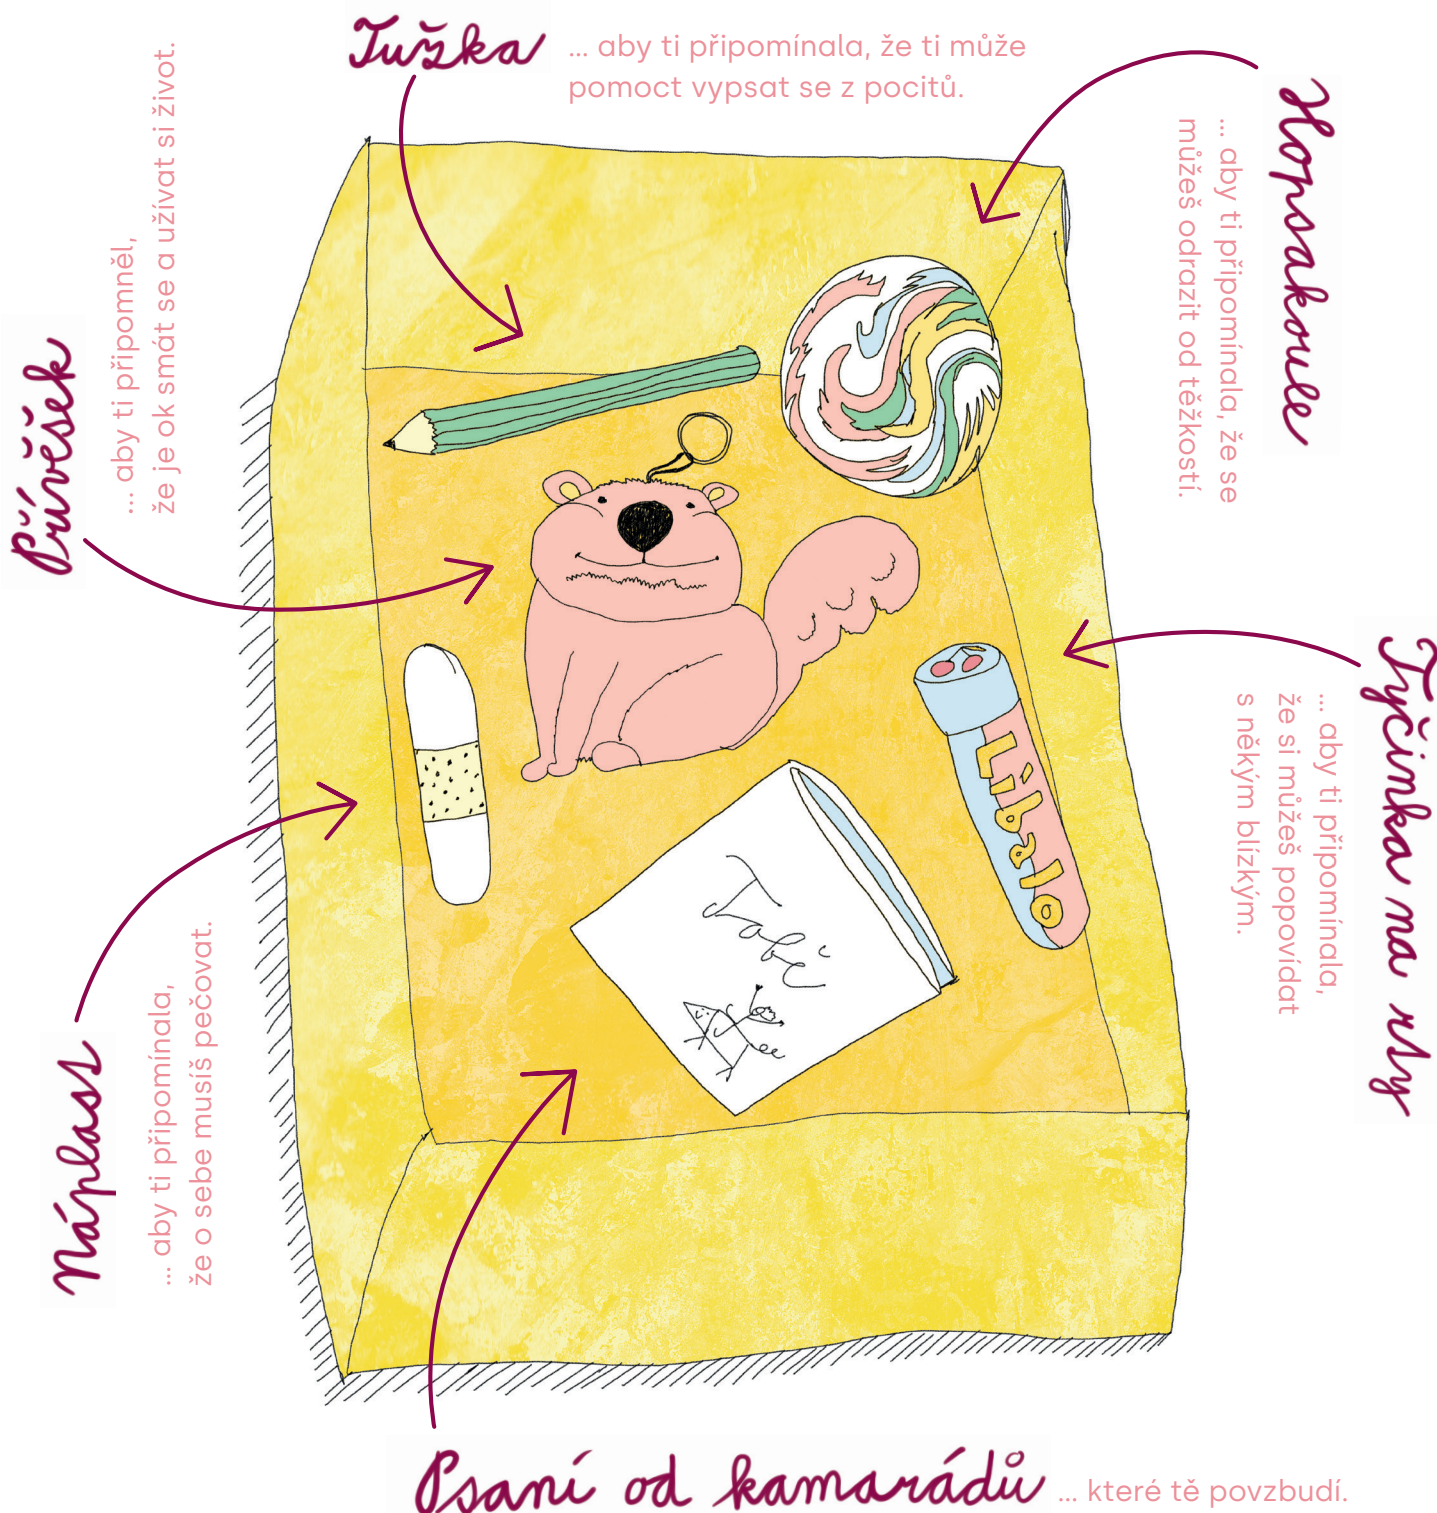 Tužka
... aby ti připomínala, že ti může
pomoct vypsat se z pocitů.
Hopsakoule
... aby ti připomínala, že se
můžeš odrazit od těžkostí.
Přívěšek
... aby ti připomněl,
že je ok smát se a užívat si život.
Tyčinka na rty
... aby ti připomínala,
že si můžeš popovídat
s někým blízkým.
Líbalo
Tobě
Náplast
... aby ti připomínala,
že o sebe musíš pečovat.
Psaní od kamarádů
... které tě povzbudí.